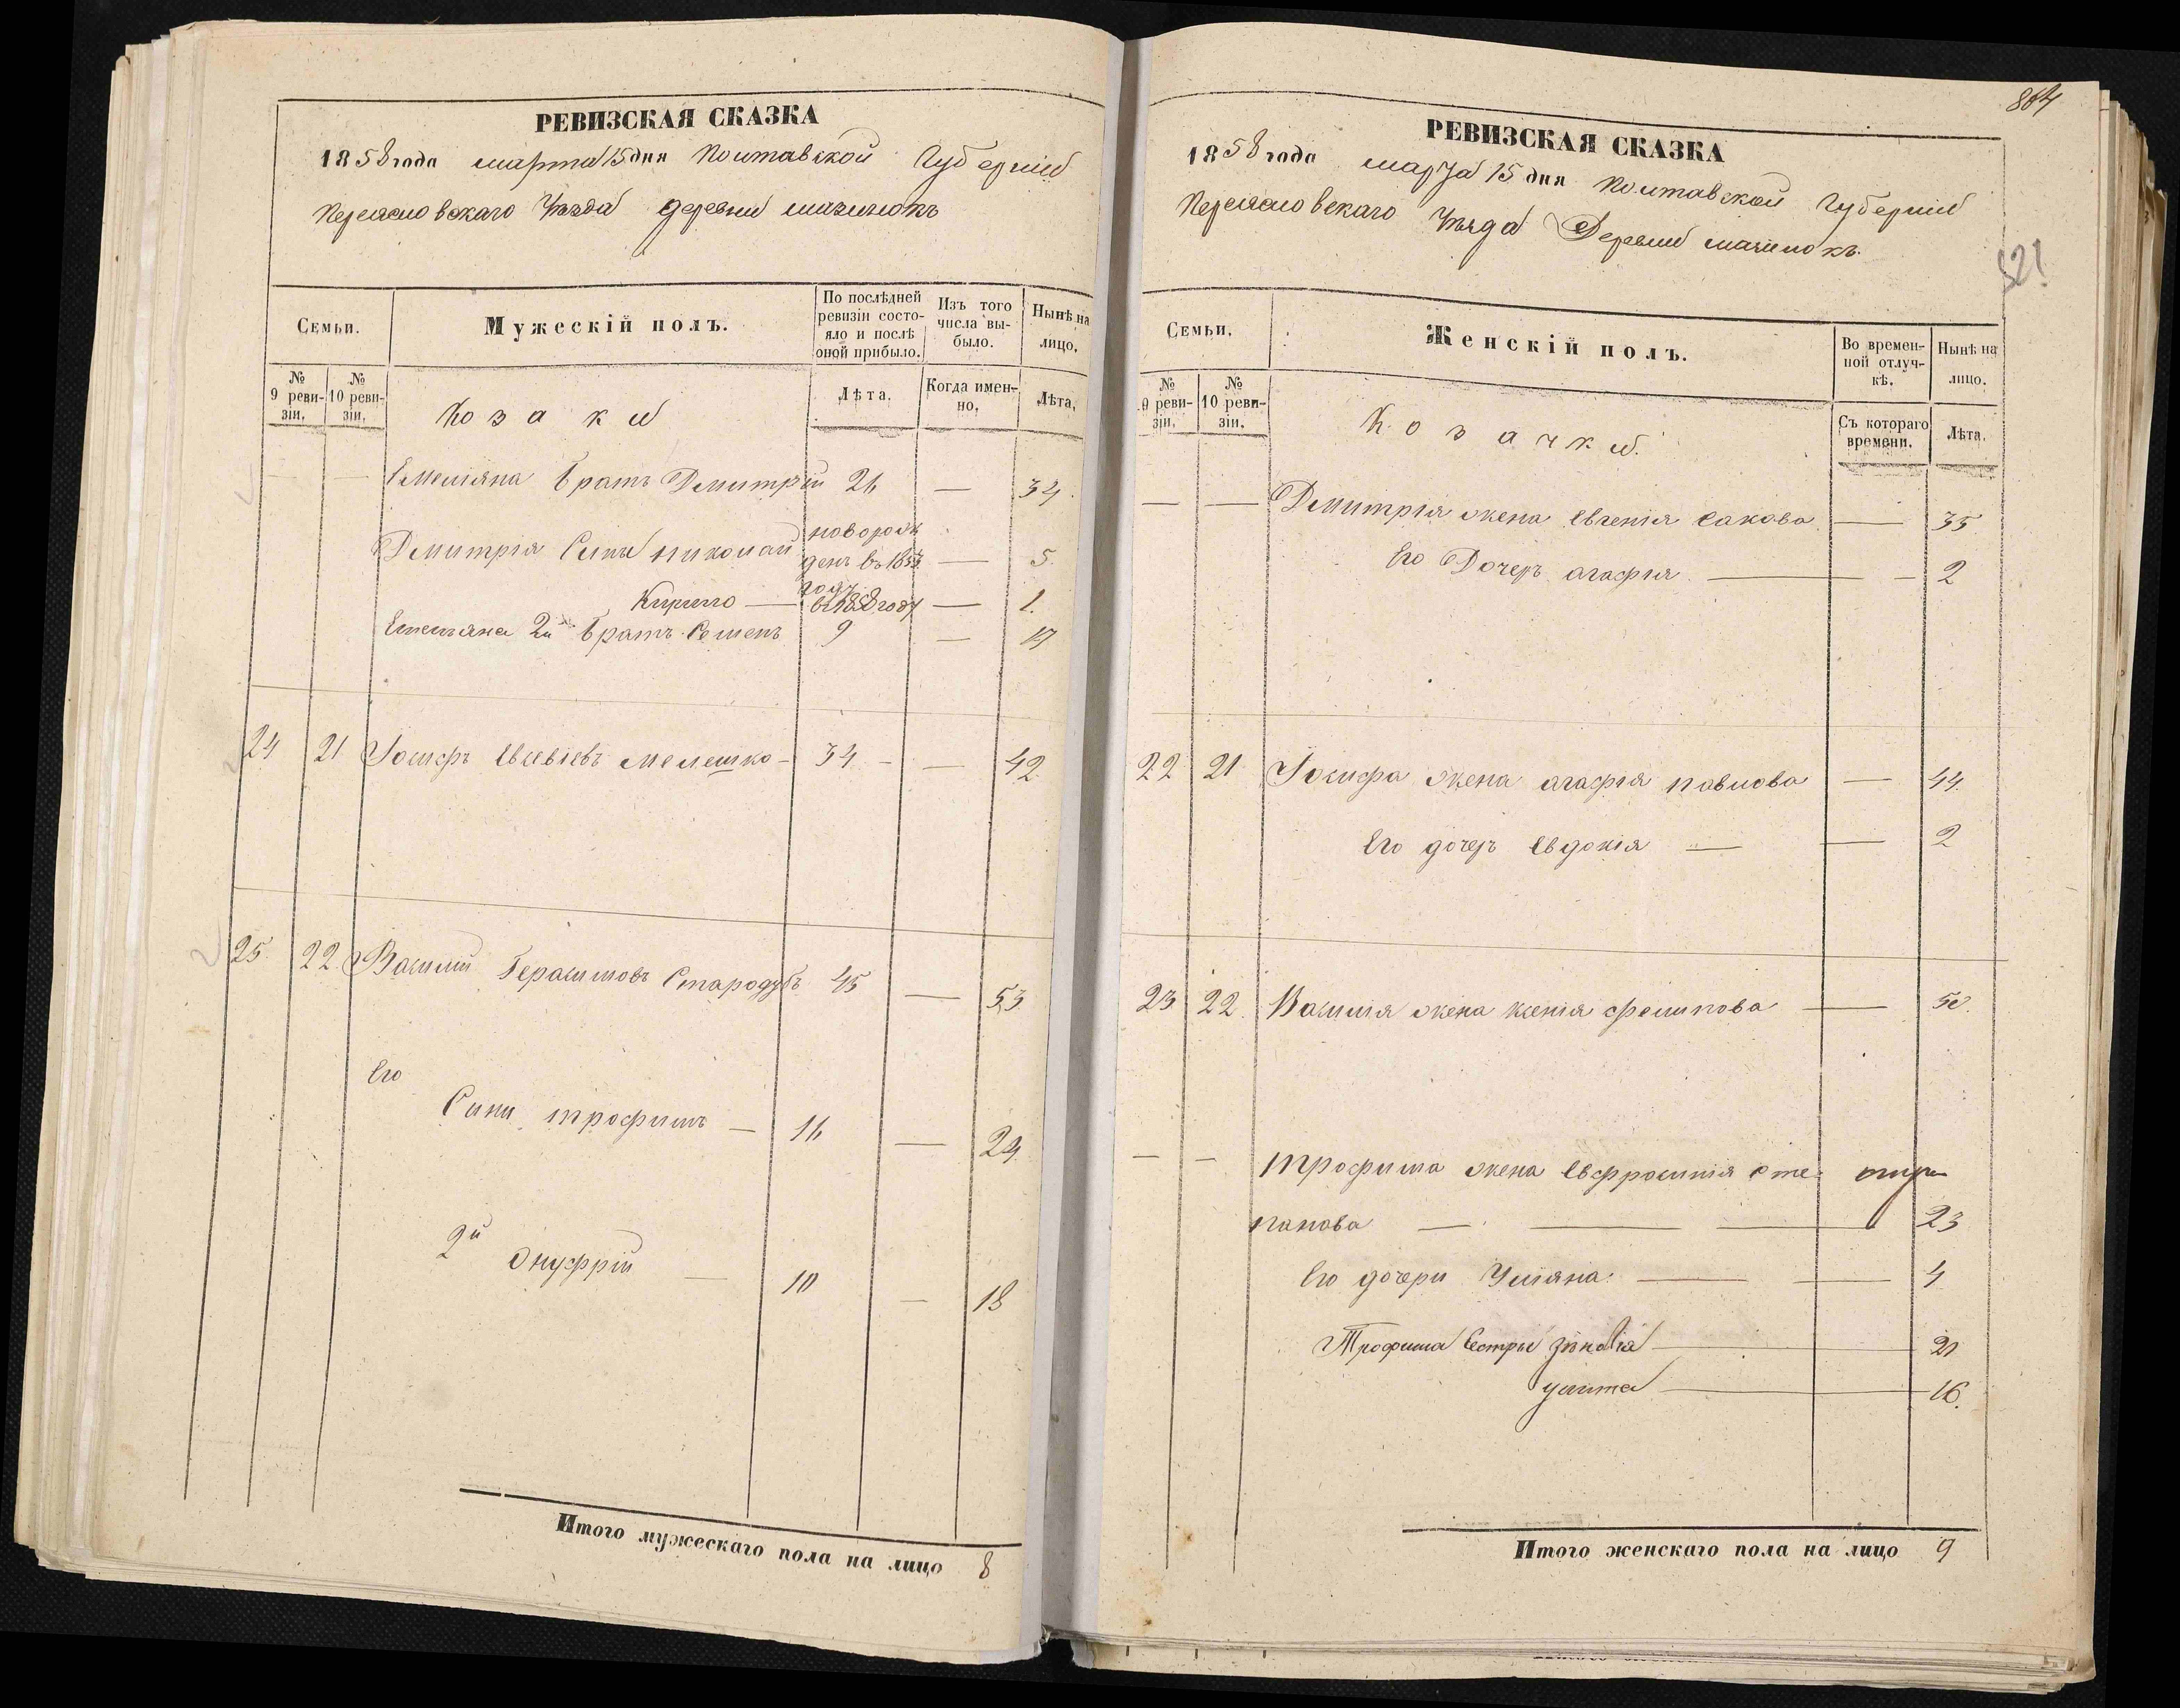 РЕВИЗСКАЯ СКАЗКА
1858 года марта 15 дня Полтавской Губерніи
Переяславскаго Уѣзда деревни
Семьи.
Мужескій полъ.
По послѣдней ревизіи состояло и послѣ оной прибыло.
Изъ того числа выбыло.
Нынѣ на лицо.
№ 9 ревизіи.
№ 10 ревизіи.
Козаки
Лѣта.
Когда именно.
Лѣта.
— — Емеліяна братъ Дмитрій 26 — 34.
Дмитрія Сины николай новорожденъ въ 1853 году — 5.
Кирило — въ 1858 году — 1.
Емельяна 2й братъ Семенъ 9 — 17
24 21 Іосифъ Евсевіевъ Мелешко — 34 — — 42.
25. 22. Василий Герасимовъ Стародубъ 45 — 53.
Его
Сини трофимъ — 16 — 24.
2й Онуфрій — 10 — 18
Итого мужескаго пола на лицо 8
864
РЕВИЗСКАЯ СКАЗКА
1858 года марта 15 дня Полтавской Губерніи
Переяславскаго Уѣзда Деревни
521
Семьи.
Женскій полъ.
Во временной отлучкѣ.
Нынѣ на лицо.
№ 9 ревизіи.
№ 10 ревизіи.
Козачки.
Съ котораго времени.
Лѣта.
— — Дмитрія жена Евгенія Сакова — 35.
Его Дочерь агафія — — 2
22 21 Іосифа жена агафія павлова — 44.
Его дочерь Евдокія — — 2
23 22. Василія жена ксенія филипова — 50.
— — трофима жена Евфросинія сте-
панова — — — 23
Его дочери Уліяна — — 4
Трофима Сестры зіновія — 21
улита — 16.
Итого женскаго пола на лицо 9